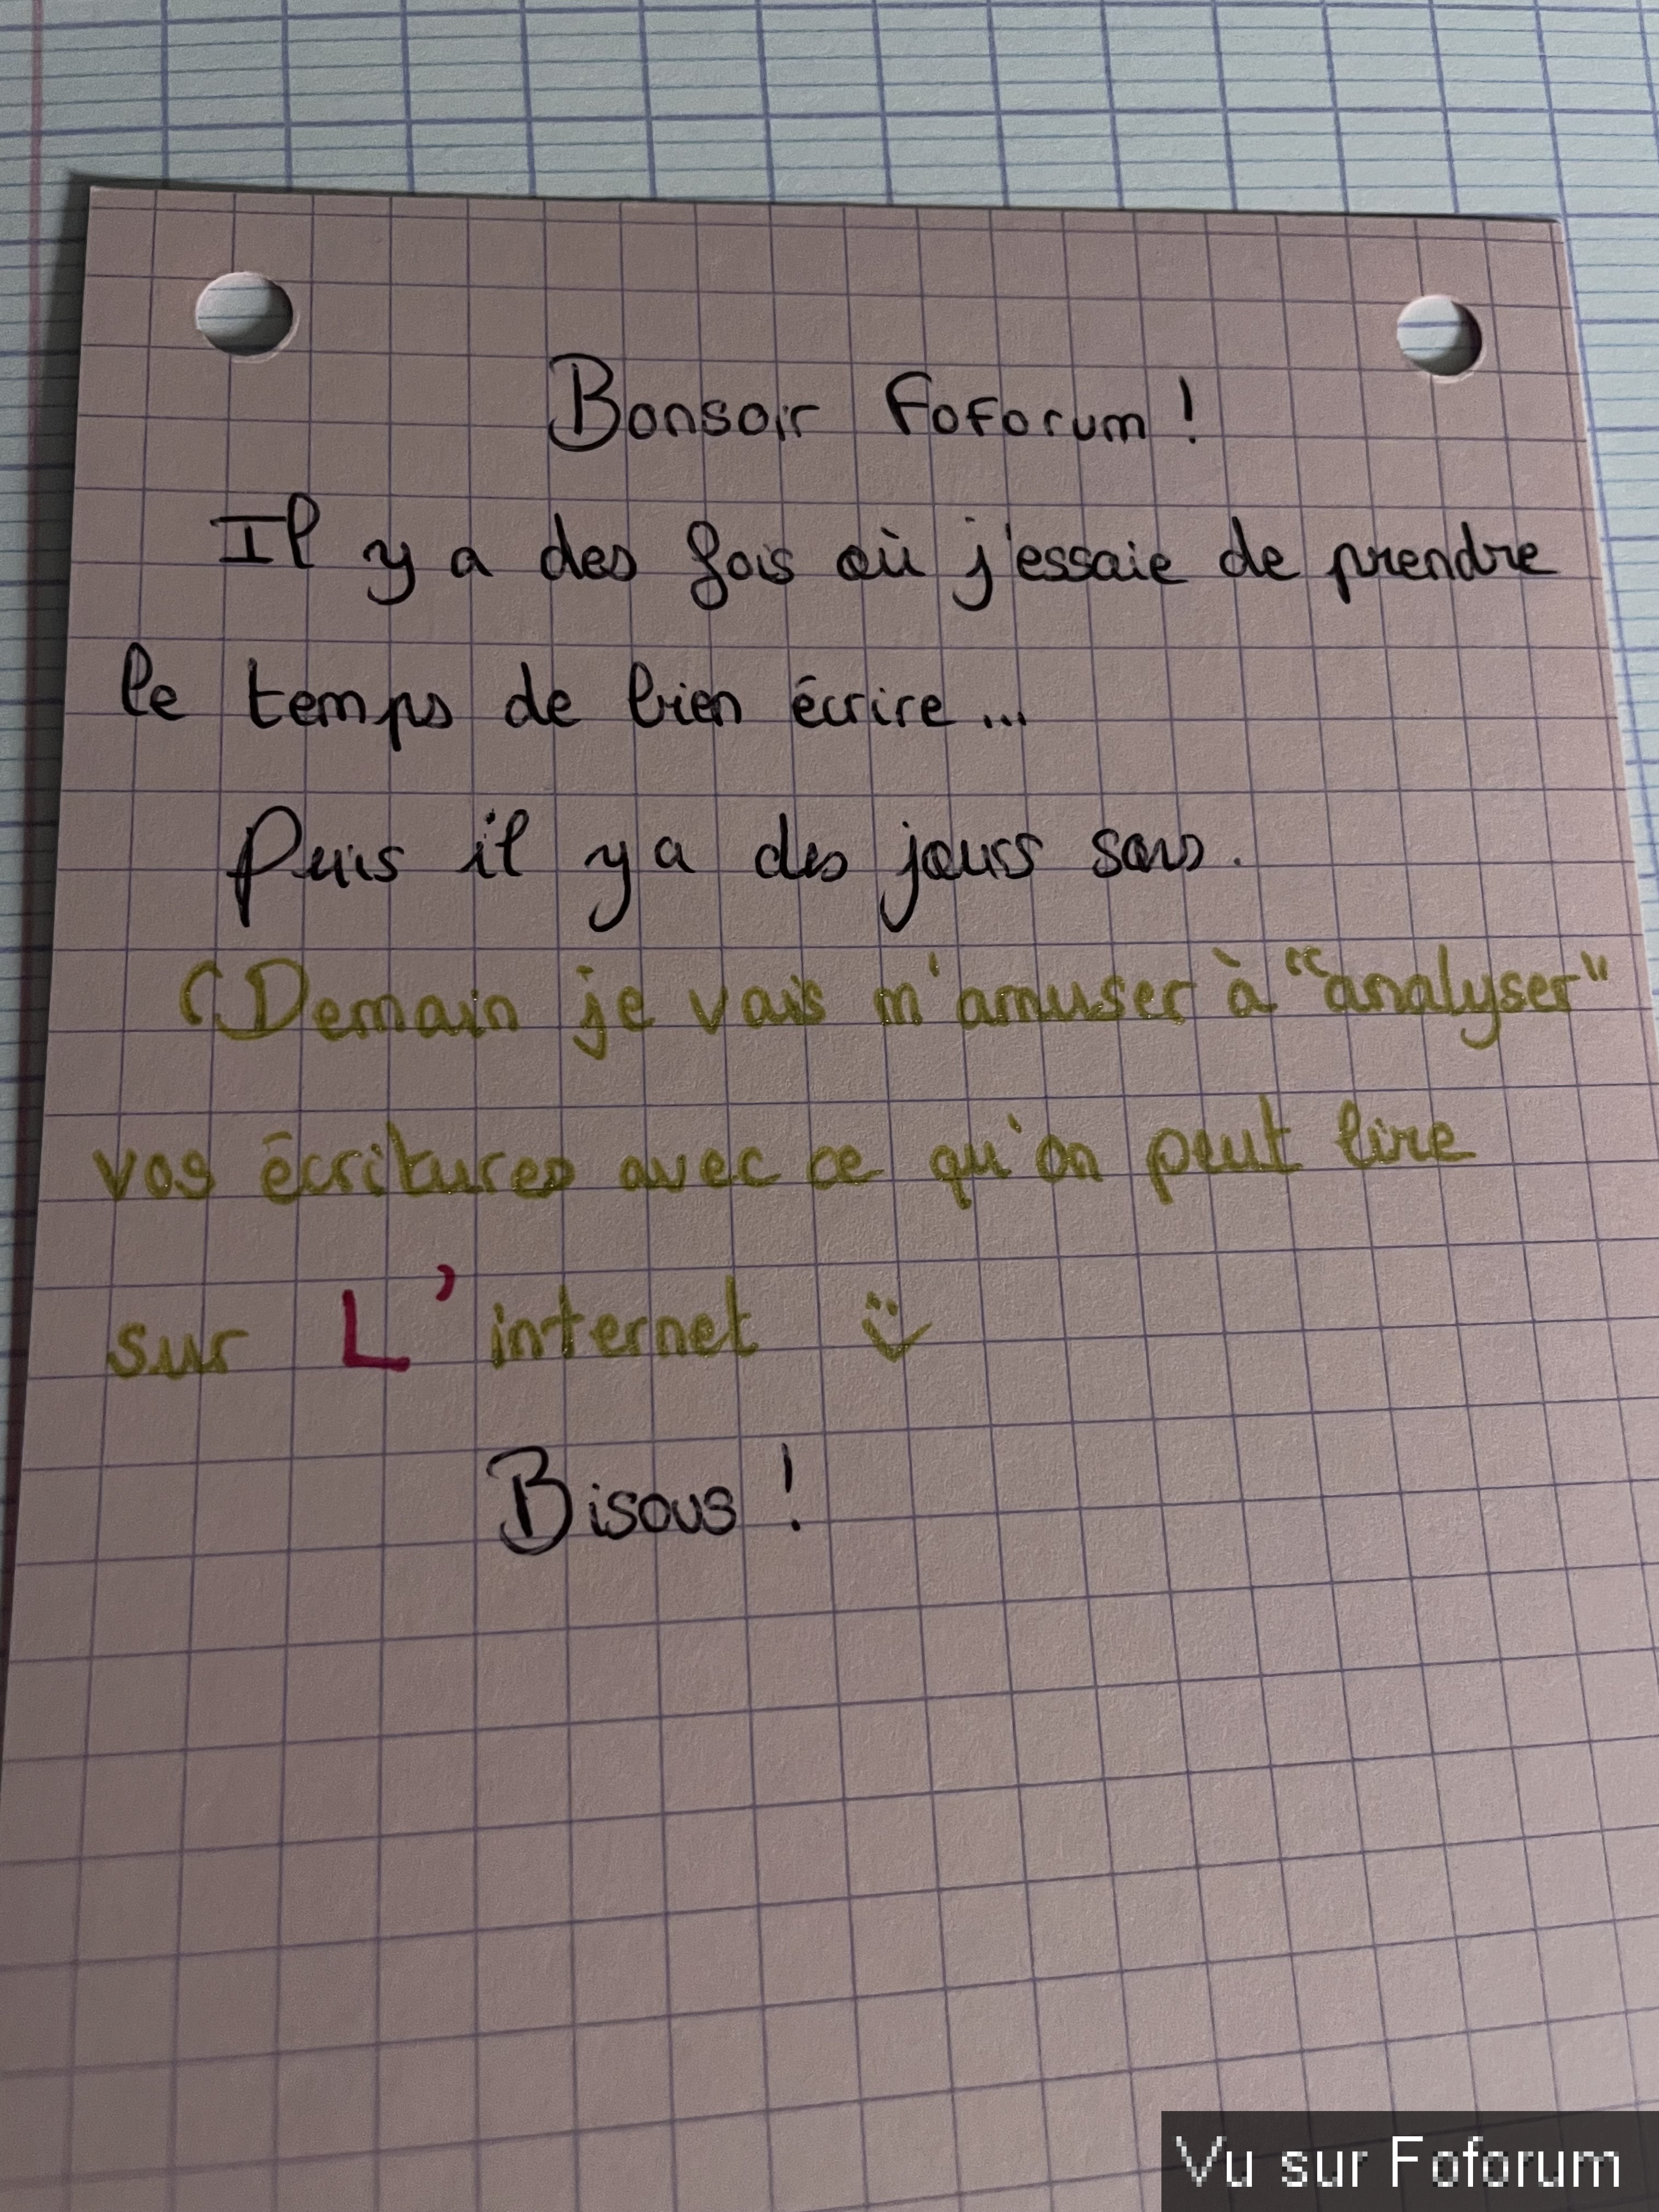 Bonsoir Foforum !
Il y a des fois où j'essaie de prendre
le temps de bien écrire...
Puis il y a des jours sans.
(Demain je vais m'amuser à "analyser"
vos écritures avec ce qu'on peut lire
sur L'internet :)
Bisous !
Vu sur Foforum